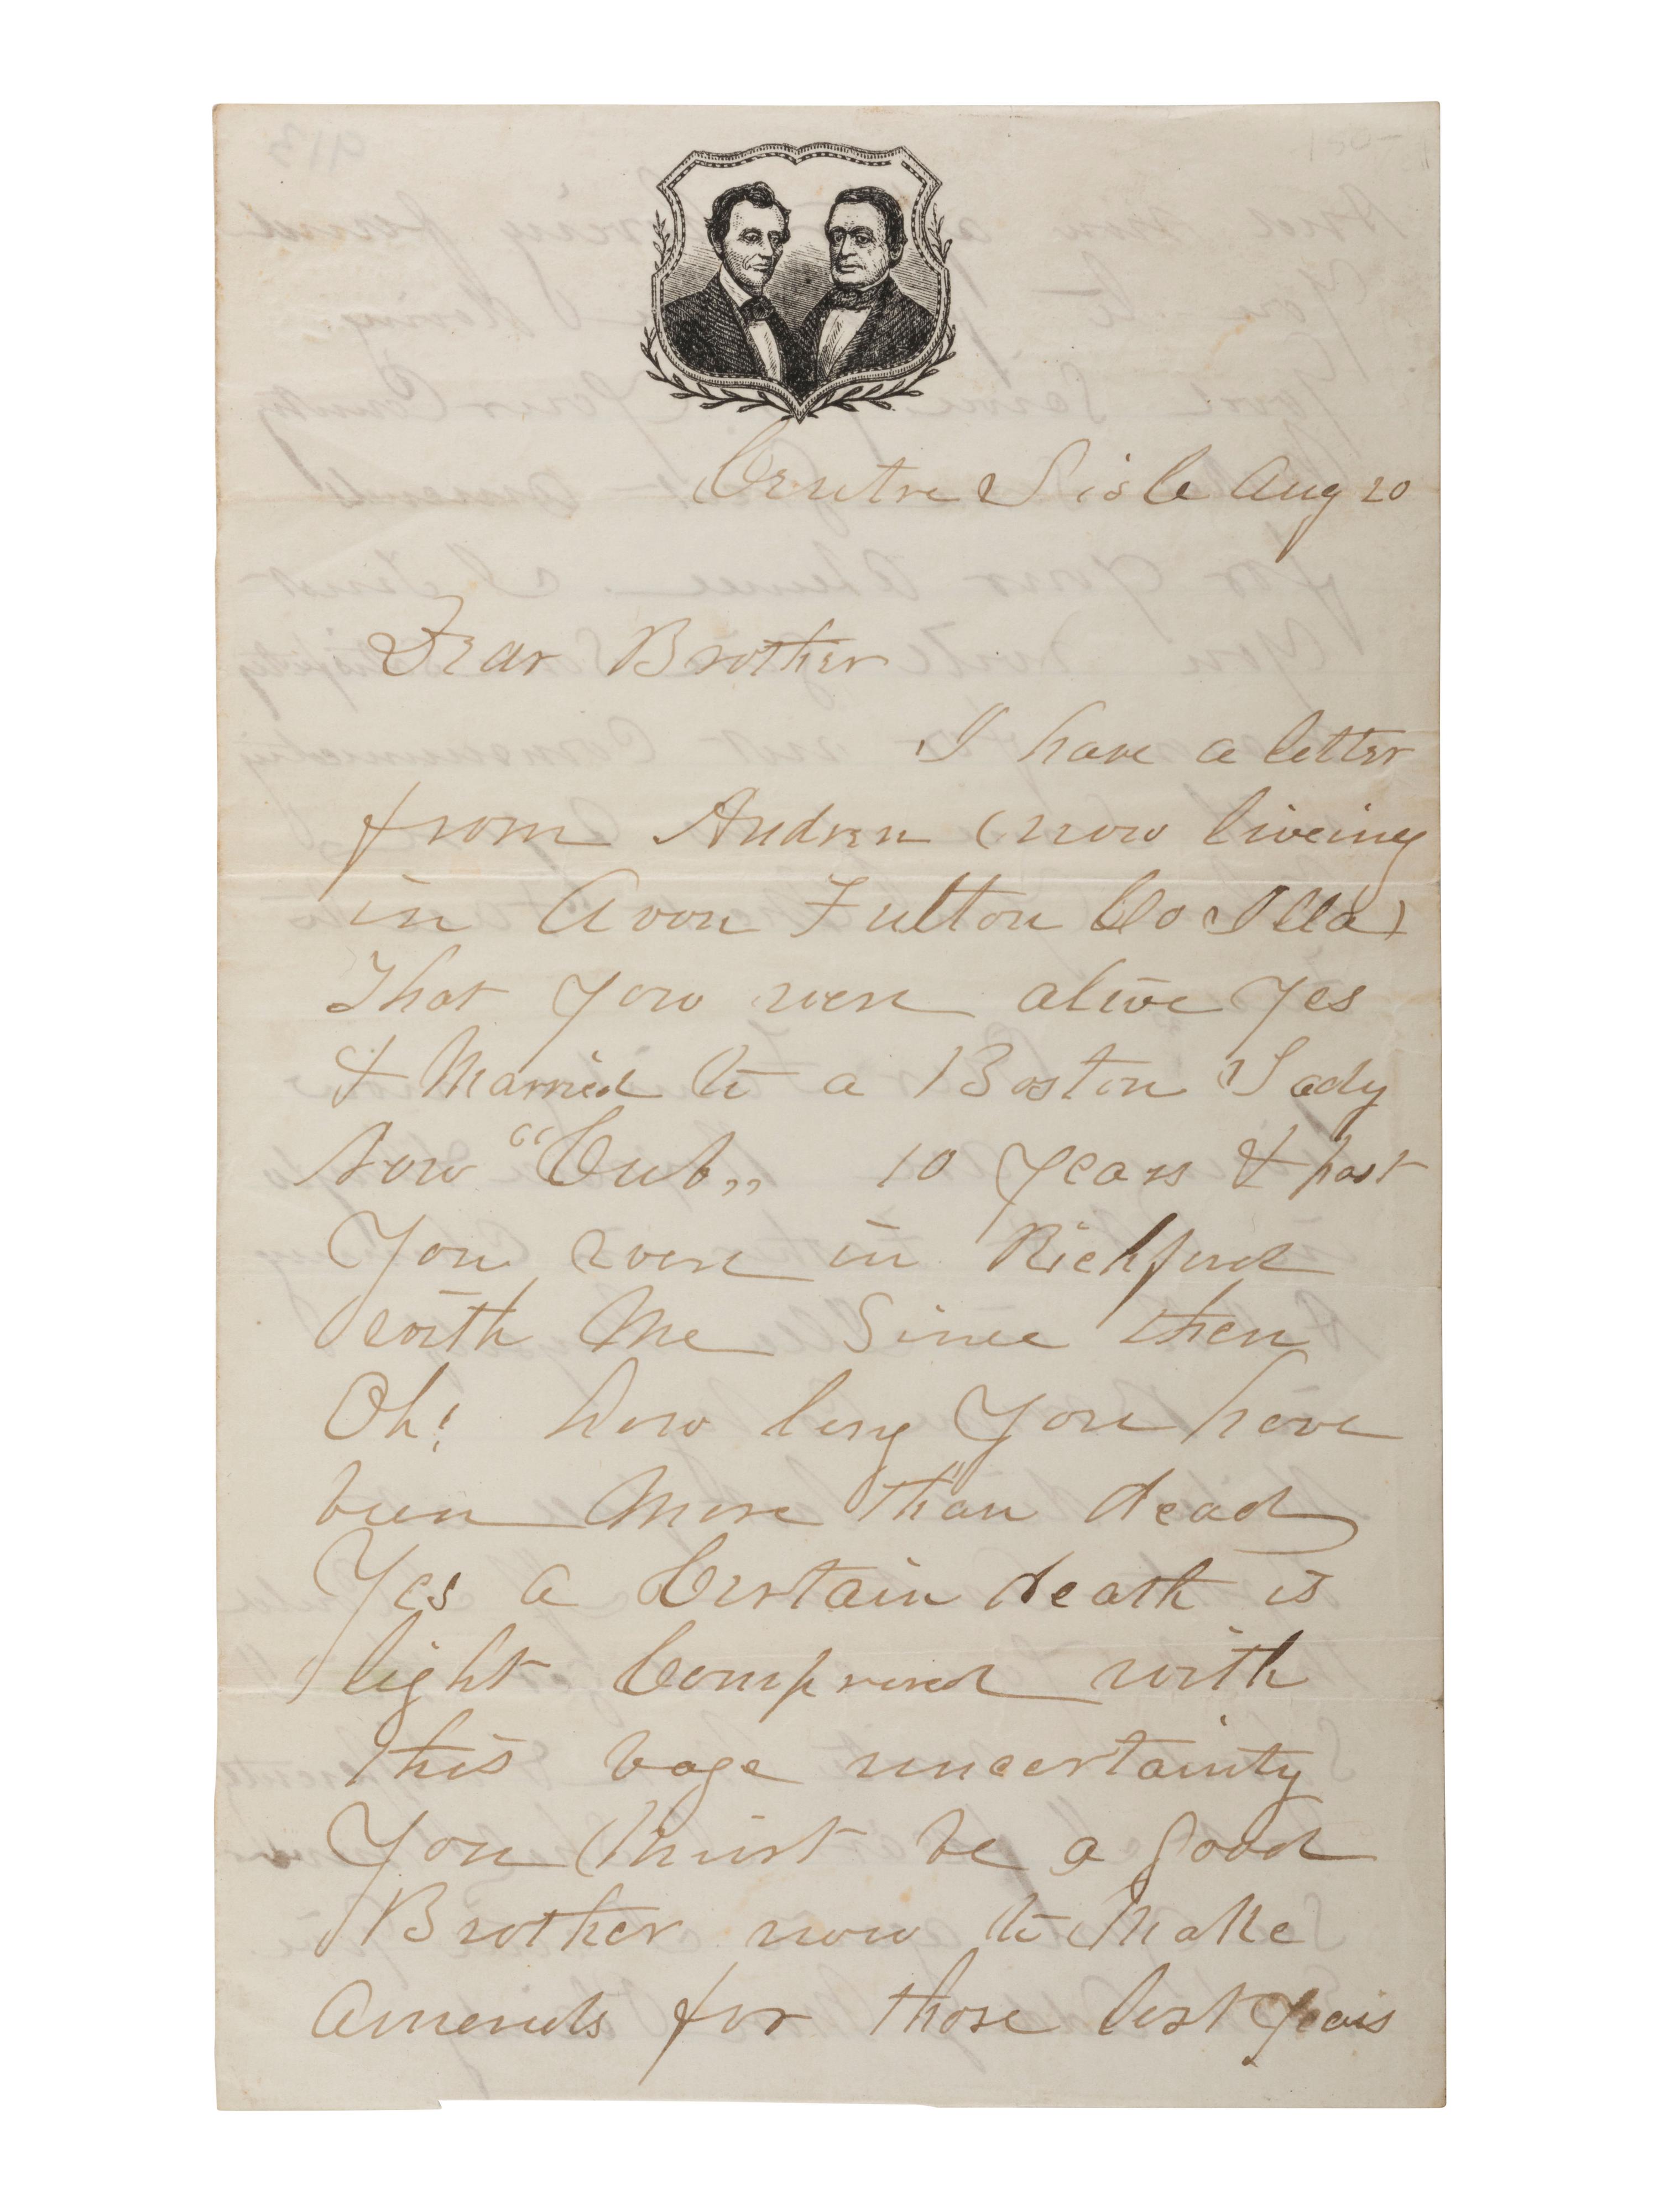 Centre Lisle Aug 20
Dear Brother
I have a letter
from Andrew (now liveing
in Avon Fulton Co Ills)
That you were alive Yes
& Married to a Boston Lady
Now "Cub„ 10 Years & past
You were in Richford
with Me Since then
Oh! how long You have
been More than dead
Yes a Certain death is
light Compared with
this vage uncertainty
You Must be a good
Brother now to Make
Amends for those lost Years